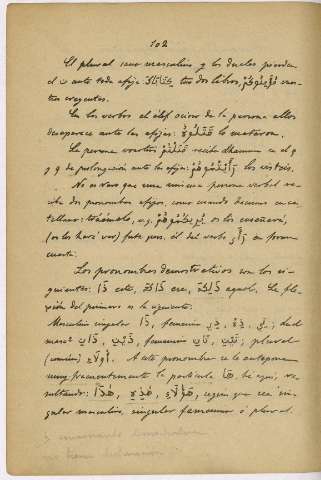 102
El plural sano masculino y los duales pierden
el ن ante todo afijo كِتَابَاكَ tus dos libros, مُؤْمِنُوهُمْ sus
tros creyentes.
En los verbos el élif ocioso de la persona ellos
desaparece ante los afijos: قَتَلُوهُ lo mataron.
La persona vosotros قَتَلْتُمْ recibe dhamma en el م
y و de prolongación ante los afijos: رَأَيْتُمُوهُمْ los visteis.
No es raro que una misma persona verbal re-
ciba dos pronombres afijos, como cuando decimos en cas-
tellano: tráemelo, e.g. os los enseñará,
(os los hará ver) fut. pers. él del verbo رَأَى en forma
cuarta.
Los pronombres demostrativos son los si-
guientes: ذَا este, ذَاكَ ese, ذَلِكَ aquel. La fle-
xión del primero es la siguiente:
Masculino singular ذَا, femenino ذِي, ذِهِ, تِي; dual
masc. ذَيْنِ, ذَانِ, femenino تَيْنِ, تَانِ; plural
(común) أُولَاءِ. A este pronombre se le antepone
muy frecuentemente la partícula هَا he aquí, re-
sultando: هَذَا, هَذِهِ, هَؤُلَاءِ, según que sea sin-
gular masculino, singular femenino ó plural.
no tiene